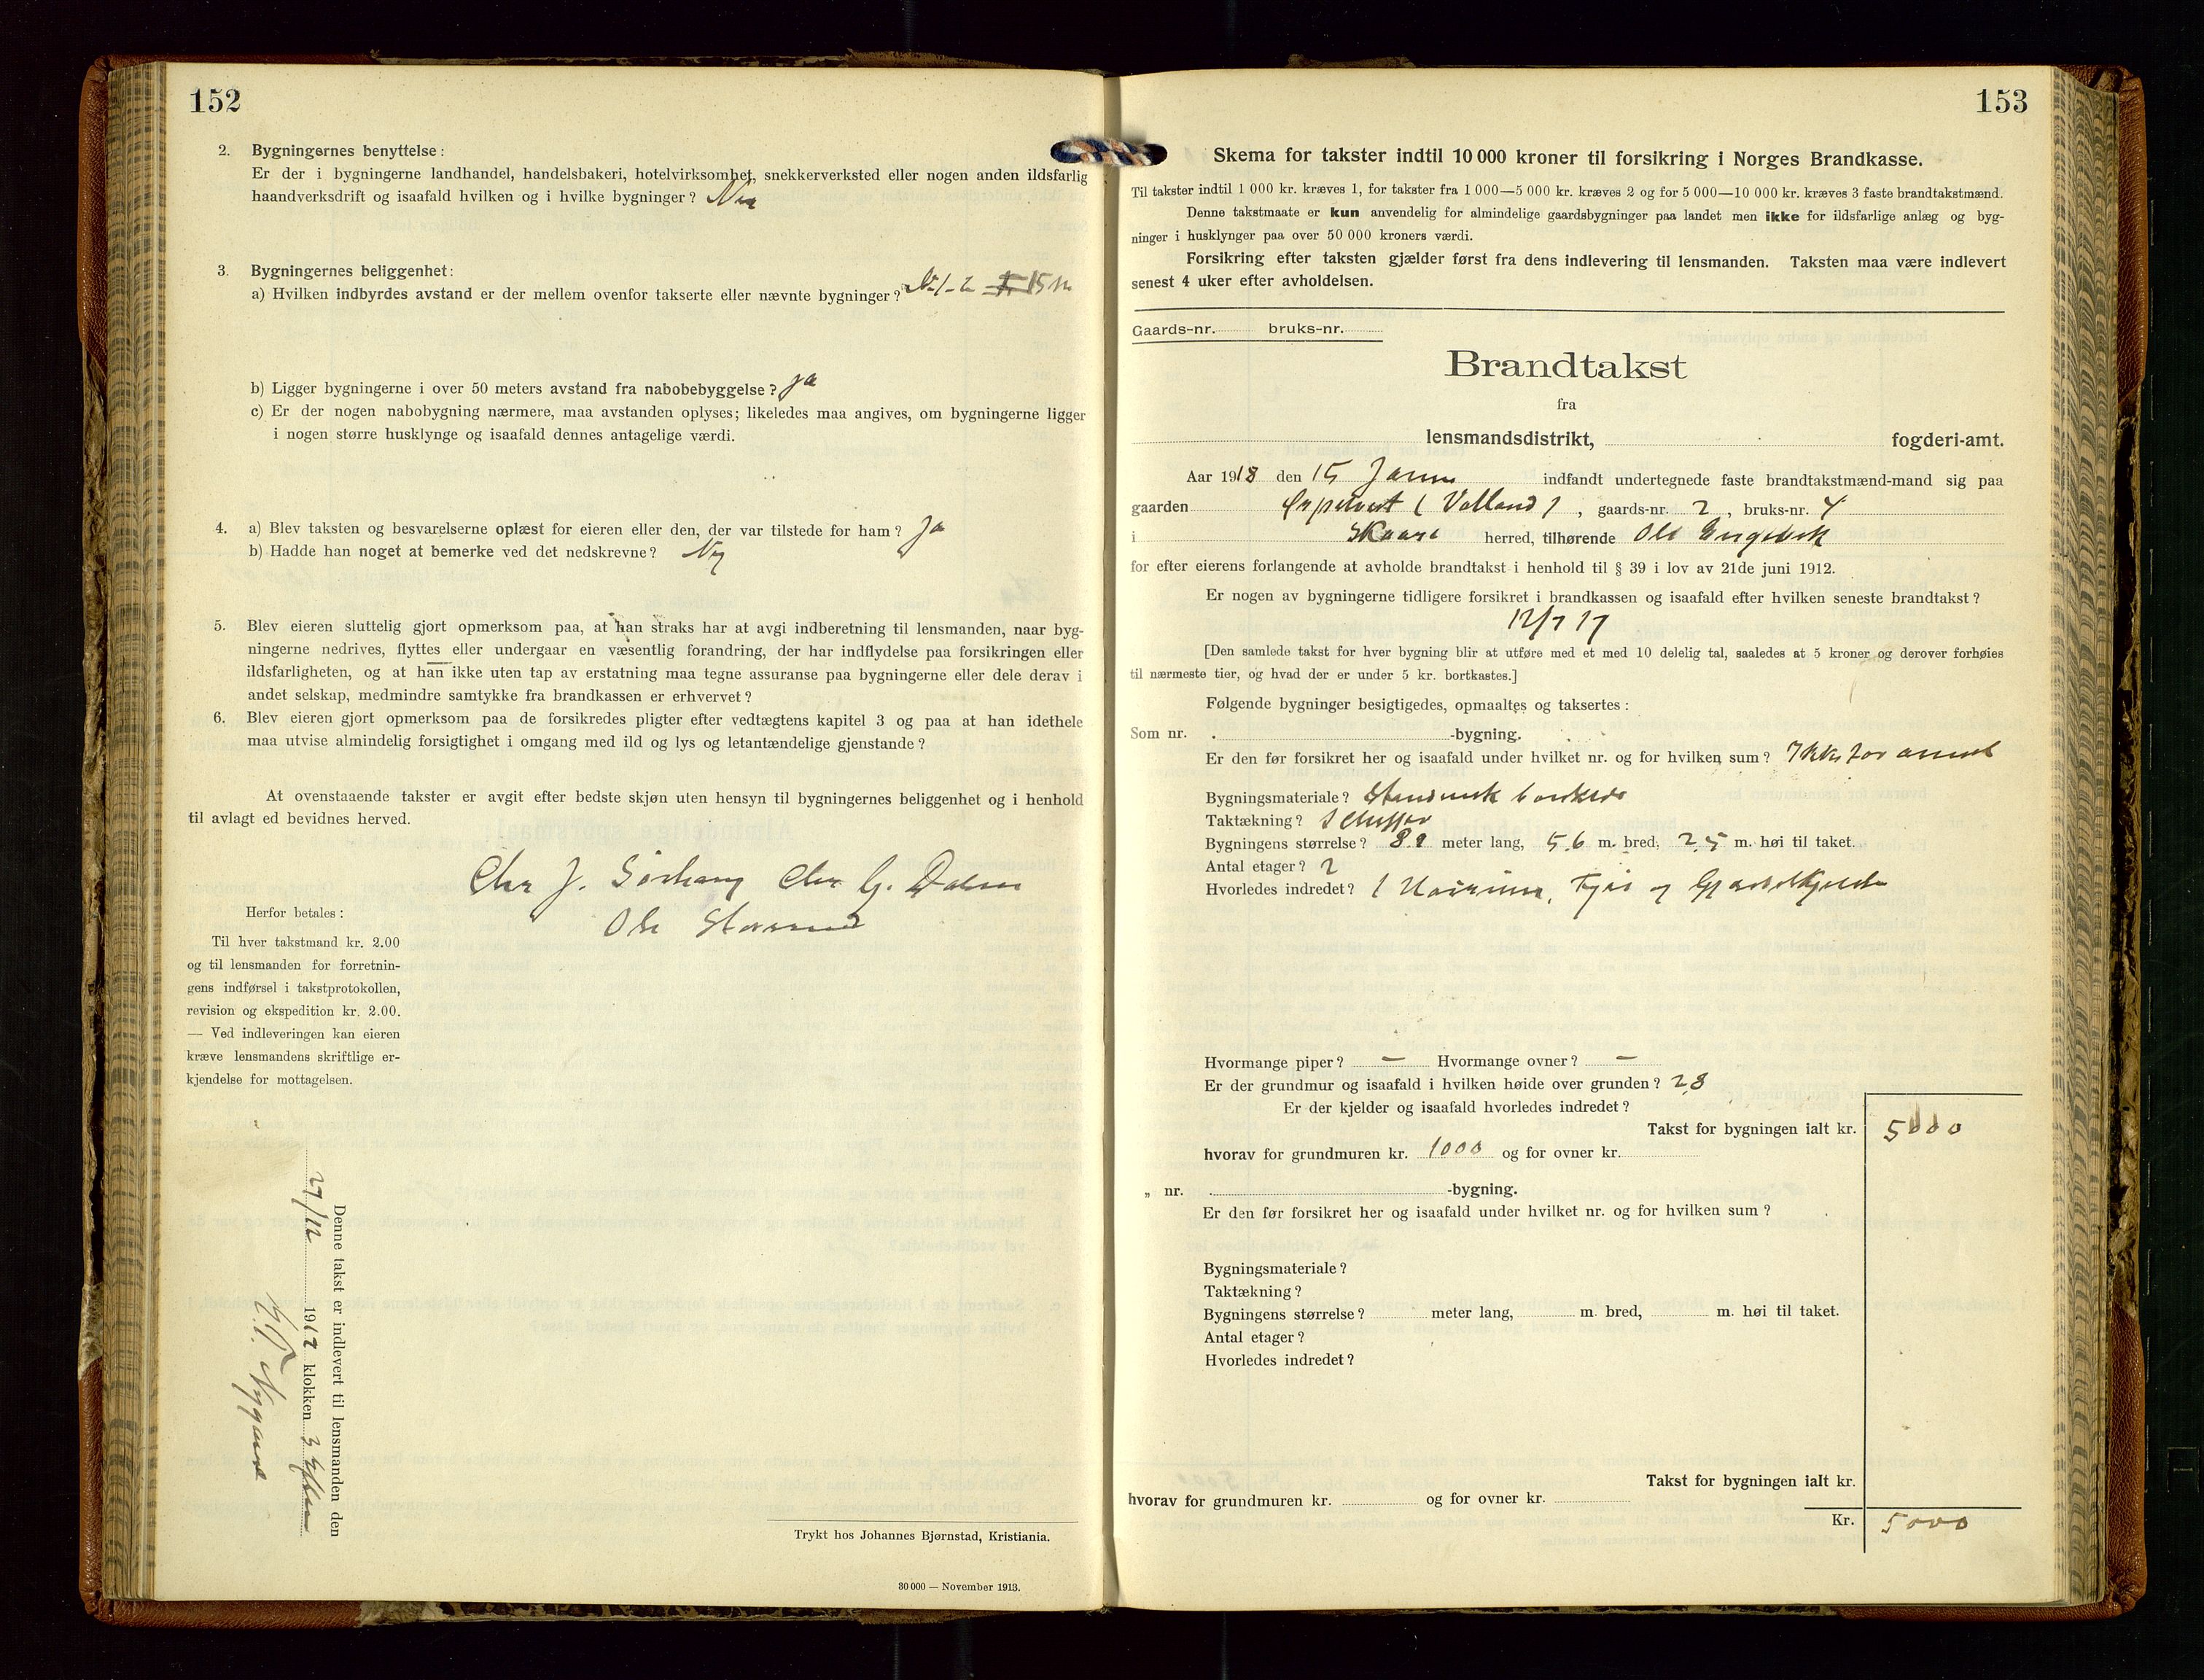 152
2. Bygningernes benyttelse:
Er der i bygningerne landhandel, handelsbakeri, hotelvirksomhet, snekkerverksted eller nogen anden ildsfarlig
haandverksdrift og isaafald hvilken og i hvilke bygninger?
3. Bygningernes beliggenhet:
a) Hvilken indbyrdes avstand er der mellem ovenfor takserte eller nævnte bygninger? No 1-2 15 m
b) Ligger bygningerne i over 50 meters avstand fra nabobebyggelse? ja
c) Er der nogen nabobygning nærmere, maa avstanden oplyses; likeledes maa angives, om bygningerne ligger
i nogen større husklynge og isaafald dennes antagelige værdi.
4. a) Blev taksten og besvarelserne oplæst for eieren eller den, der var tilstede for ham? Ja
b) Hadde han noget at bemerke ved det nedskrevne? Nej
5. Blev eieren sluttelig gjort opmerksom paa, at han straks har at avgi indberetning til lensmanden, naar byg-
ningerne nedrives, flyttes eller undergaar en væsentlig forandring, der har indflydelse paa forsikringen eller
ildsfarligheten, og at han ikke uten tap av erstatning maa tegne assuranse paa bygningerne eller dele derav i
andet selskap, medmindre samtykke fra brandkassen er erhvervet?
6. Blev eieren gjort opmerksom paa de forsikredes pligter efter vedtægtens kapitel 3 og paa at han idethele
maa utvise almindelig forsigtighet i omgang med ild og lys og letantændelige gjenstande?
At ovenstaaende takster er avgit efter bedste skjøn uten hensyn til bygningernes beliggenhet og i henhold
til avlagt ed bevidnes herved.
Chr J. Sørhaug Chr G. Dalen
Ole
Herfor betales:
Til hver takstmand kr. 2.00
og til lensmanden for forretnin-
gens indførsel i takstprotokollen,
revision og ekspedition kr. 2.00.
— Ved indleveringen kan eieren
kræve lensmandens skriftlige er-
kjendelse for mottagelsen.
Denne takst er indlevert til lensmanden den
27/12 1917 klokken 3 Efterm
Nygaard
Trykt hos Johannes Bjørnstad, Kristiania.
30 000 — November 1913.
153
Skema for takster indtil 10 000 kroner til forsikring i Norges Brandkasse.
Til takster indtil 1 000 kr. kræves 1, for takster fra 1 000—5 000 kr. kræves 2 og for 5 000—10 000 kr. kræves 3 faste brandtakstmænd.
Denne takstmaate er kun anvendelig for almindelige gaardsbygninger paa landet men ikke for ildsfarlige anlæg og byg-
ninger i husklynger paa over 50 000 kroners værdi.
Forsikring efter taksten gjælder først fra dens indlevering til lensmanden. Taksten maa være indlevert
senest 4 uker efter avholdelsen.
Gaards-nr. bruks-nr.
Brandtakst
fra
lensmandsdistrikt, fogderi-amt.
Aar 1918 den 15 Januar indfandt undertegnede faste brandtakstmænd-mand sig paa
gaarden (Valland), gaards-nr. 2, bruks-nr. 4
i Skaare herred, tilhørende Ole
for efter eierens forlangende at avholde brandtakst i henhold til § 39 i lov av 21de juni 1912.
Er nogen av bygningerne tidligere forsikret i brandkassen og isaafald efter hvilken seneste brandtakst?
12/7 17
[Den samlede takst for hver bygning blir at utføre med et med 10 delelig tal, saaledes at 5 kroner og derover forhøies
til nærmeste tier, og hvad der er under 5 kr. bortkastes.]
Følgende bygninger besigtigedes, opmaaltes og taksertes:
Som nr. -bygning.
Er den før forsikret her og isaafald under hvilket nr. og for hvilken sum? Ikke
Bygningsmateriale?
Taktækning?
Bygningens størrelse? 8.2 meter lang, 5.6 m. bred, 2.5 m. høi til taket.
Antal etager? 2
Hvorledes indredet? 1 og
Hvormange piper? — Hvormange ovner? —
Er der grundmur og isaafald i hvilken høide over grunden? 2.8
Er der kjelder og isaafald hvorledes indredet?
Takst for bygningen ialt kr. 5000
hvorav for grundmuren kr. 1000 og for ovner kr.
„ nr. -bygning.
Er den før forsikret her og isaafald under hvilket nr. og for hvilken sum?
Bygningsmateriale?
Taktækning?
Bygningens størrelse? meter lang, m. bred, m. høi til taket.
Antal etager?
Hvorledes indredet?
Takst for bygningen ialt kr.
hvorav for grundmuren kr. og for ovner kr.
Kr. 5000